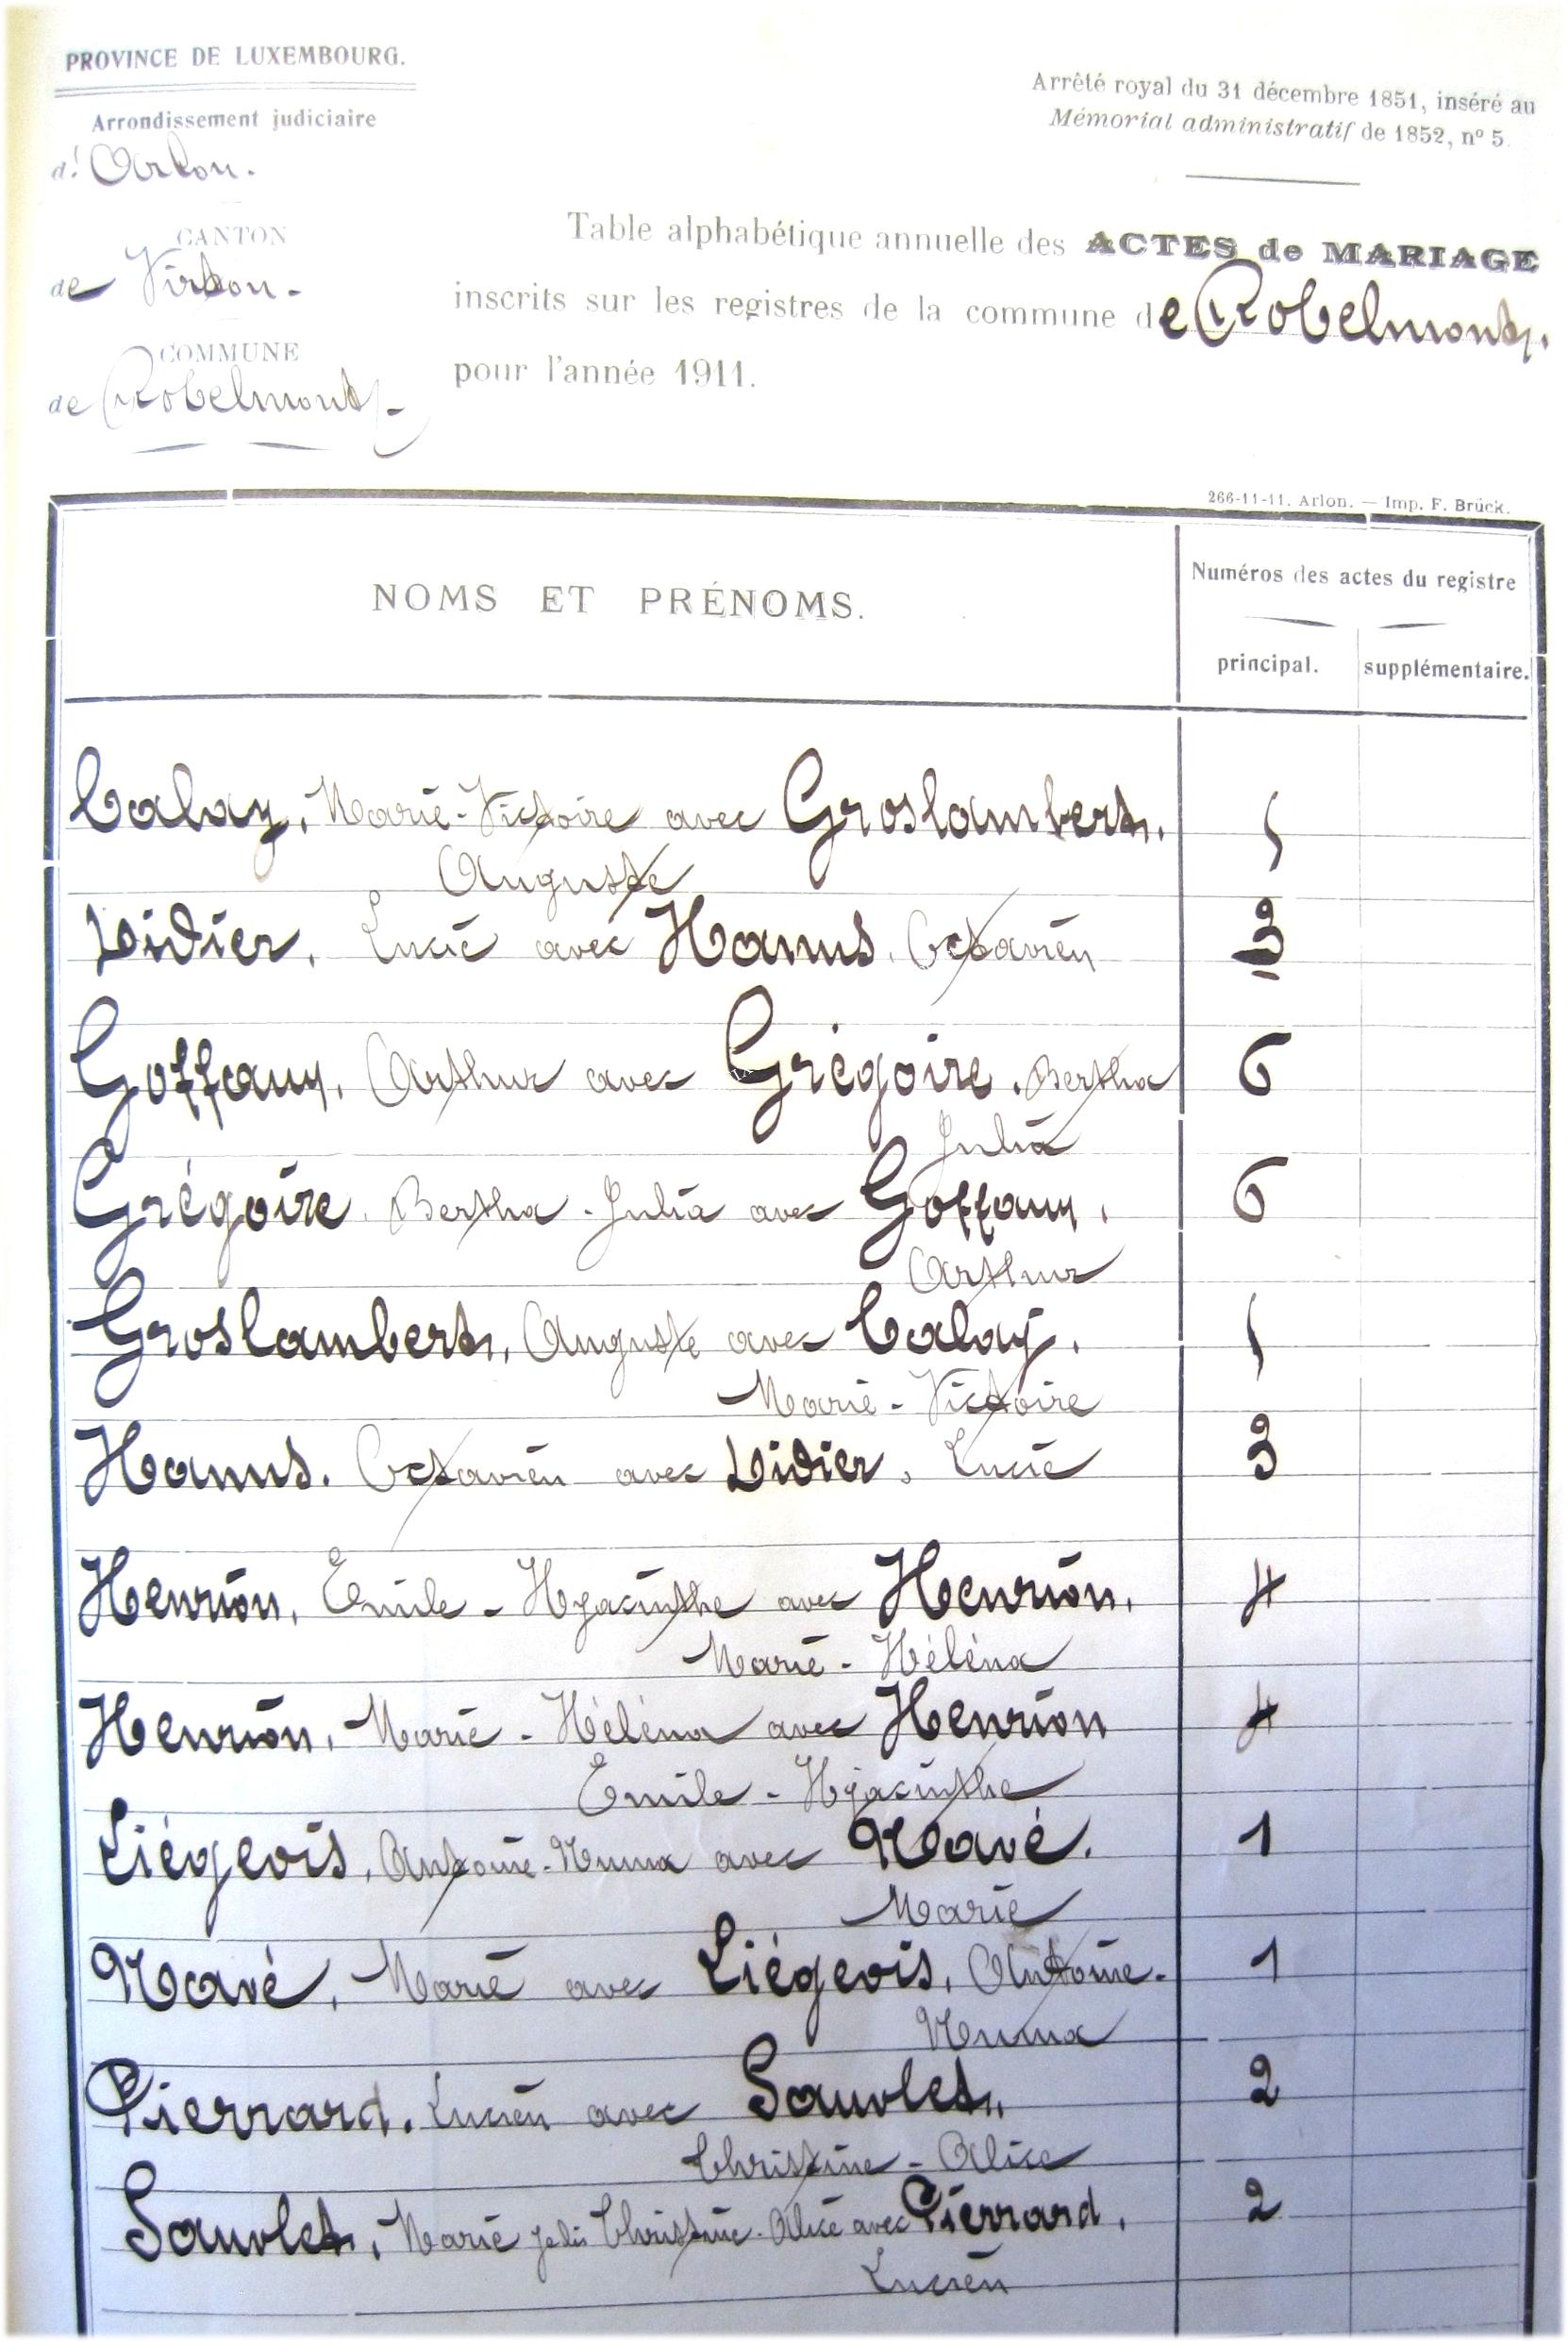 PROVINCE DE LUXEMBOURG.
Arrondissement judiciaire
d'Arlon.
CANTON
de Virton.
COMMUNE
de Robelmont.
Arrêté royal du 31 décembre 1851, inséré au
Mémorial administratif de 1852, nº 5.
Table alphabétique annuelle des ACTES de MARIAGE
inscrits sur les registres de la commune de Robelmont.
pour l'année 1911.
266-11-11. Arlon. — Imp. F. Brück.
NOMS ET PRÉNOMS.
Numéros des actes du registre
principal. supplémentaire.
Calay, Marie-Victoire avec Groslambert, 5
Auguste
Didier, Lucie avec Hanus, Octavien 3
Goffaux, Arthur avec Grégoire, Bertha 6
Julia
Grégoire, Bertha-Julia avec Goffaux, 6
Arthur
Groslambert, Auguste avec Calay, 5
Marie-Victoire
Hanus, Octavien avec Didier, Lucie 3
Henrion, Emile-Hyacinthe avec Henrion, 4
Marie-Héléna
Henrion, Marie-Héléna avec Henrion 4
Emile-Hyacinthe
Liégeois, Antoine-Numa avec Navé, 1
Marie
Navé, Marie avec Liégeois, Antoine- 1
Numa
Pierrard, Lucien avec Sauvlet, 2
Christine-Alice
Sauvlet, Marie Christine-Alice avec Pierrard, 2
Lucien